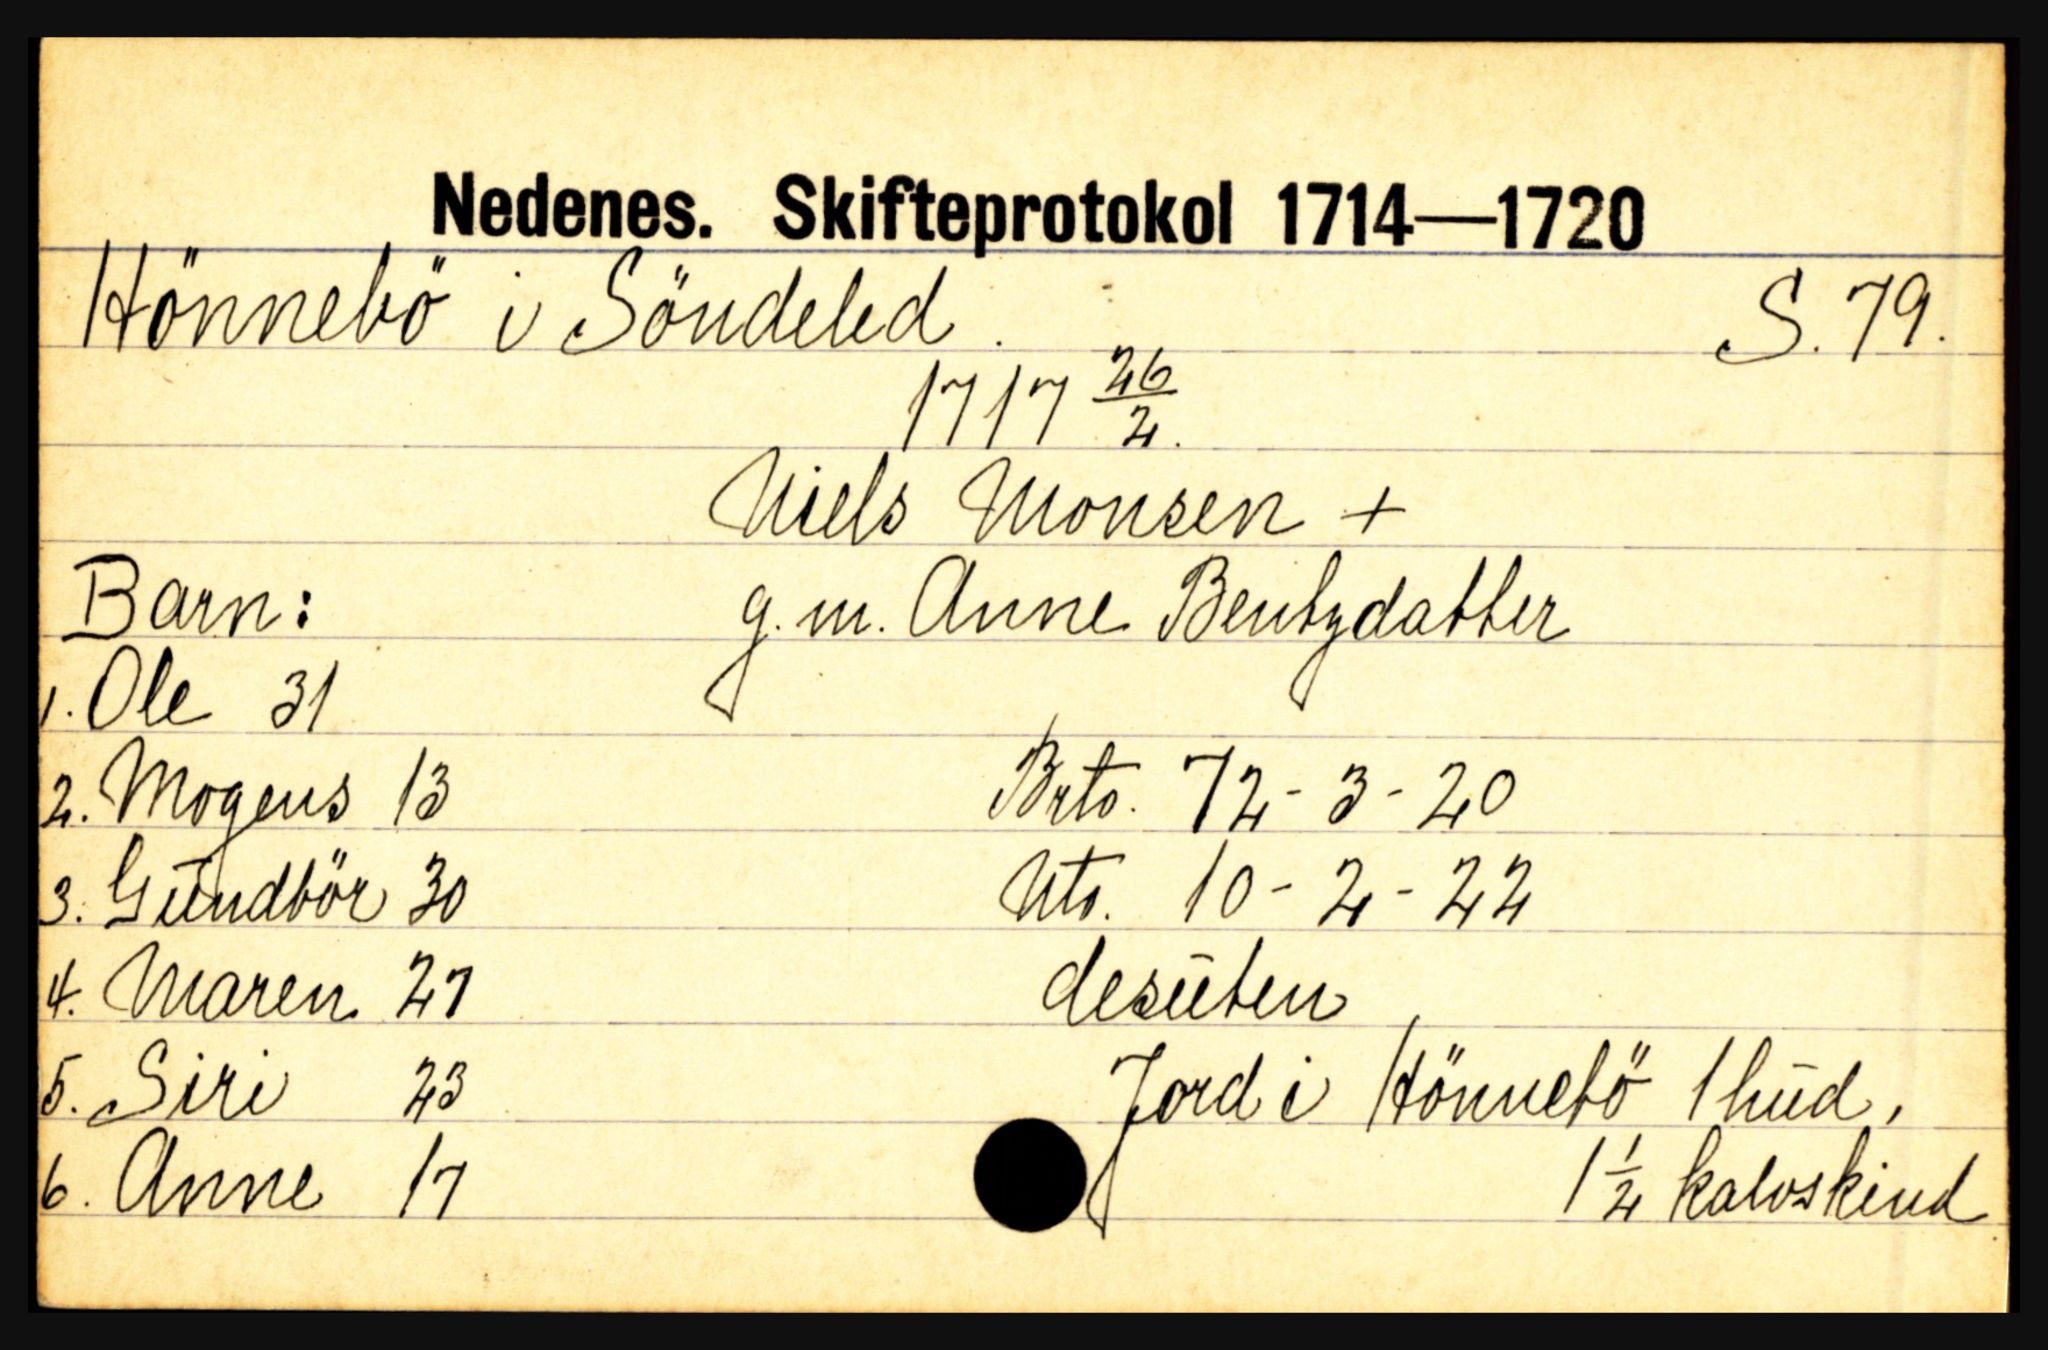 Nedenes. Skifteprotokol 1714—1720
Hönnebö i Söndeled. S. 79.
1717 26/2.
Niels Monsen +
Barn: g. m. Anne Bentzdatter
1. Ole 31
2. Mogens 13 Brto. 72-3-20
3. Gŭndbör 30 Nto. 10-2-22
4. Maren 27 desŭten
5. Siri 23 Jord i Hönnebö 1 hŭd,
6. Anne 17 1 1/2 kalvskind